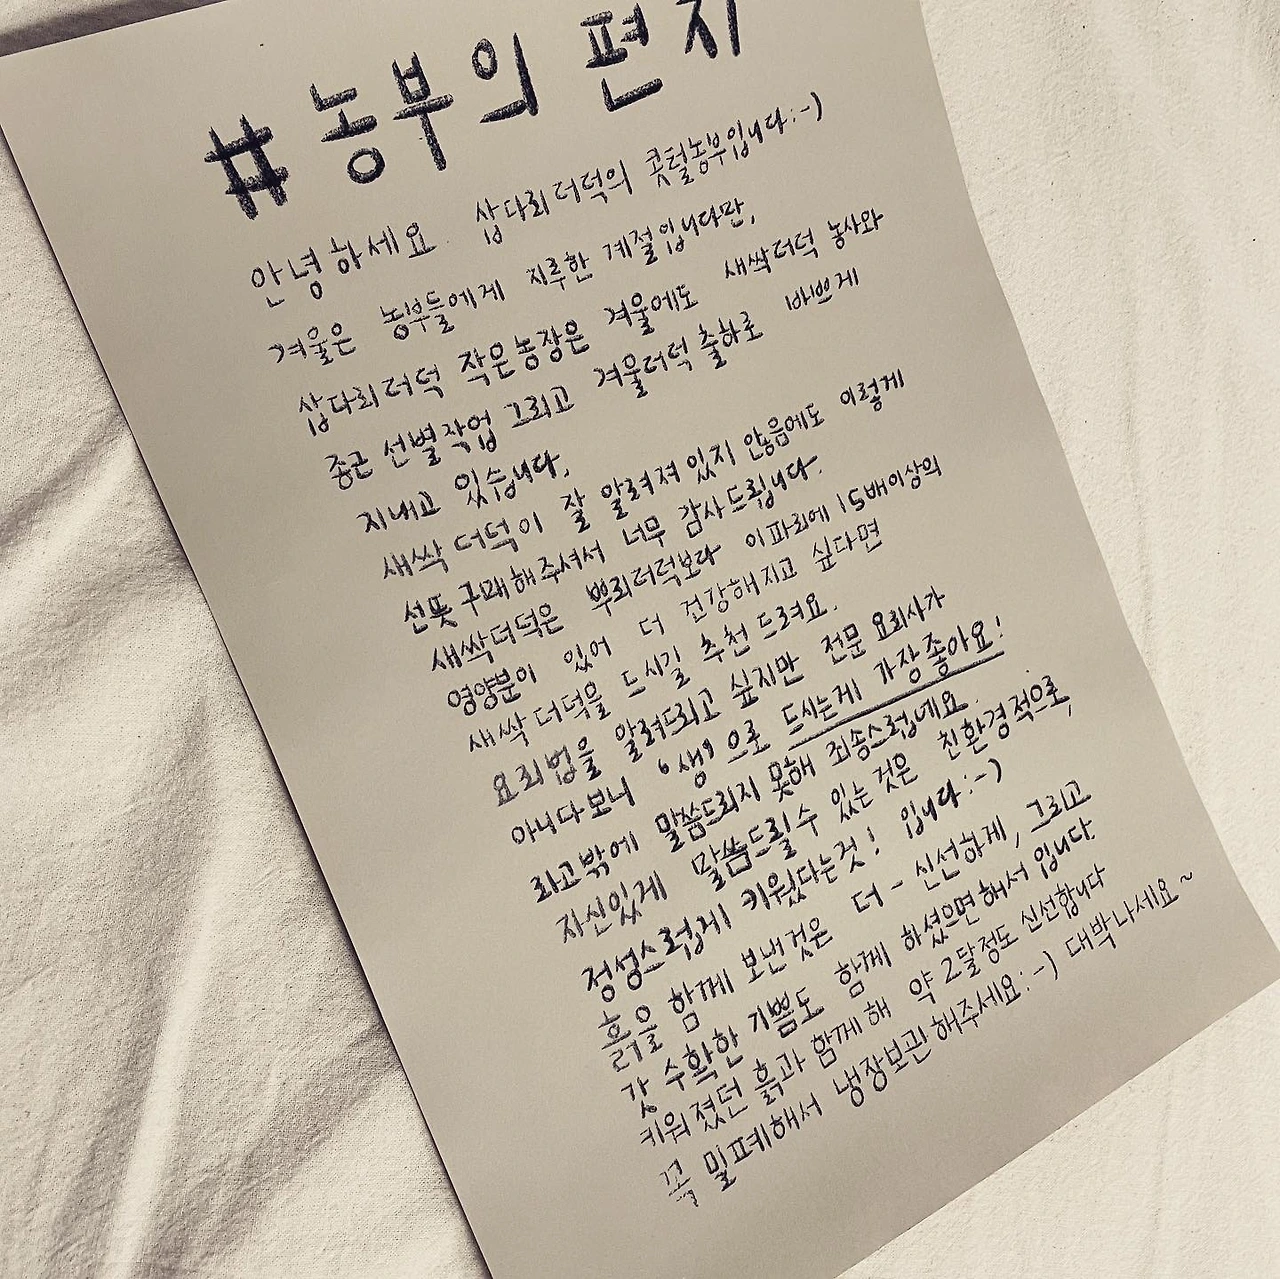 # 농부의 편지
안녕하세요. 삽다리더덕의 콧털농부입니다:-)
겨울은 농부들에게 지루한 계절입니다만,
삽다리더덕 작은농장은 겨울에도 새싹더덕 농사와
종근 선별작업 그리고 겨울더덕 출하로 바쁘게
지내고 있습니다.
새싹 더덕이 잘 알려져 있지 않음에도 이렇게
선뜻 구매해주셔서 너무 감사드립니다.
새싹더덕은 뿌리더덕보다 이파리에 15배이상의
영양분이 있어 더 건강해지고 싶다면
새싹더덕을 드시길 추천 드려요.
요리법을 알려드리고 싶지만 전문 요리사가
아니다보니 '생'으로 드시는게 가장 좋아요!
라고밖에 말씀드리지 못해 죄송스럽네요.
자신있게 말씀드릴수 있는것은 친환경적으로,
정성스럽게 키웠다는것! 입니다:-)
흙을 함께 보낸것은 더-신선하게, 그리고
갓 수확한 기쁨도 함께 하셨으면해서 입니다.
키워졌던 흙과 함께해 약 2달정도 신선합니다
꼭 밀폐해서 냉장보관해주세요:-) 대박나세요~